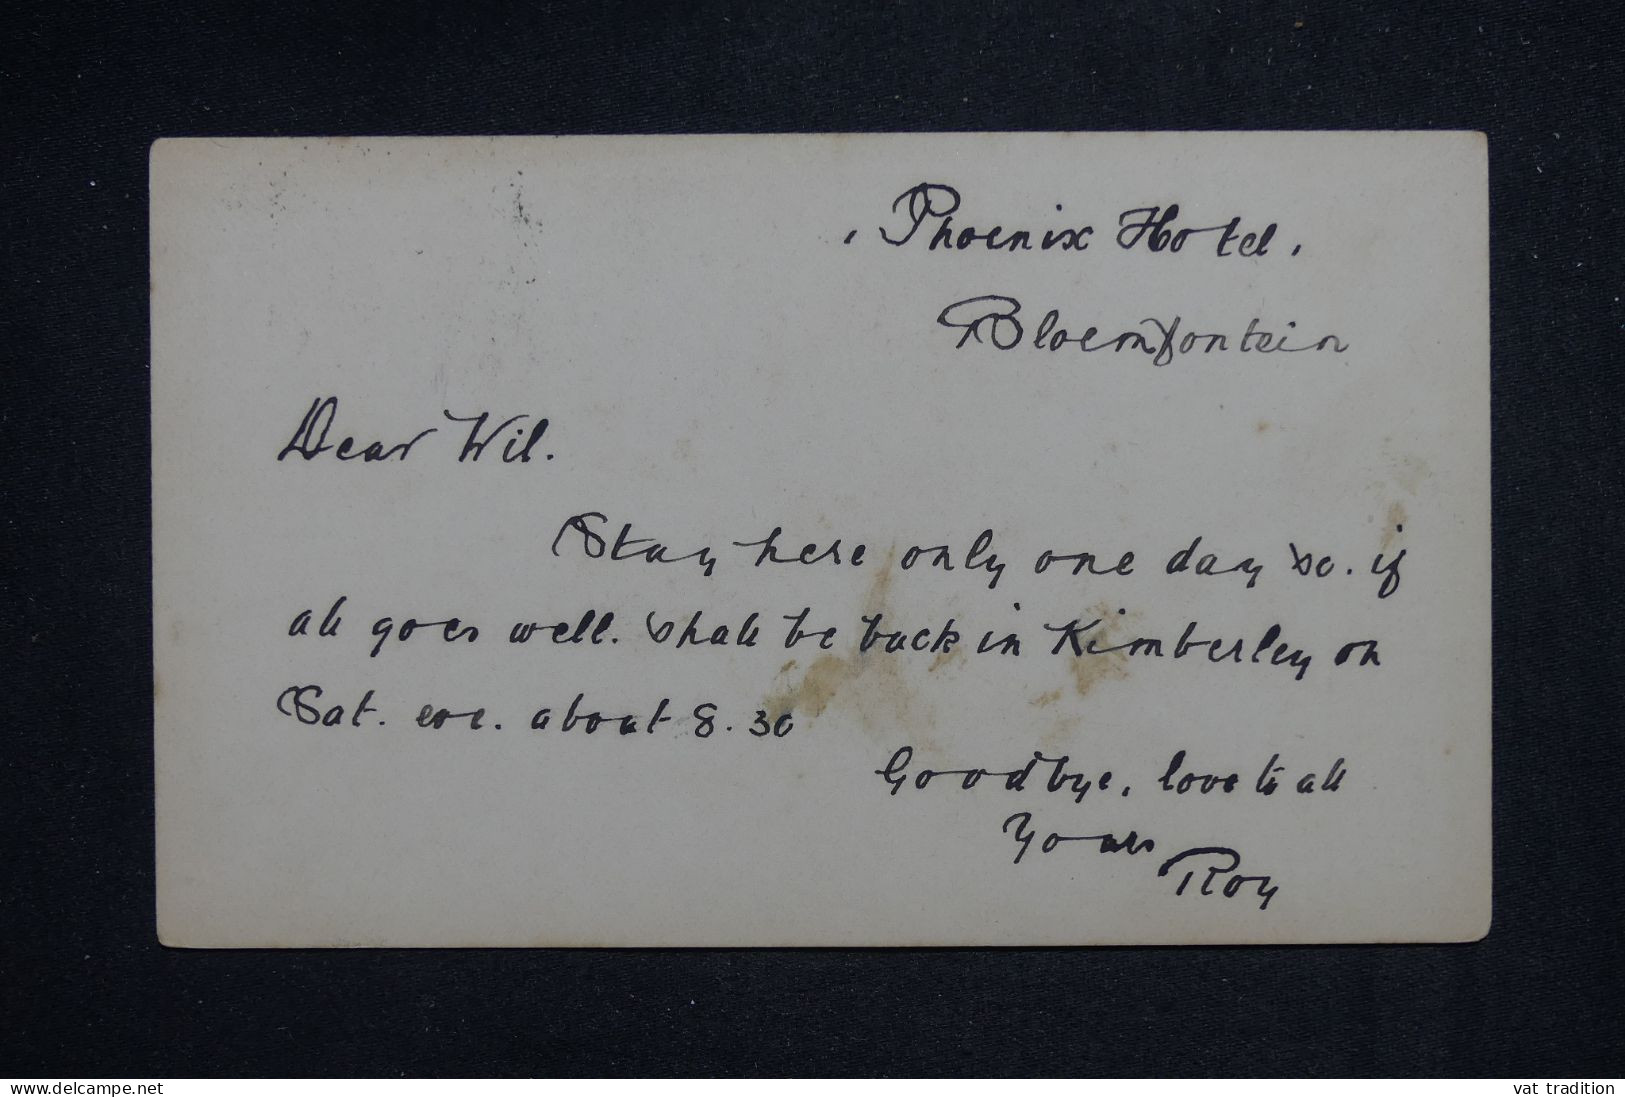 Phoenix Hotel,
Bloemfontein
Dear Wil.
Stay here only one day so. if
all goes well. shall be back in Kimberley on
Sat. eve. about 8.30
Goodbye, love to all
Yours
Roy
www.delcampe.net
vat tradition